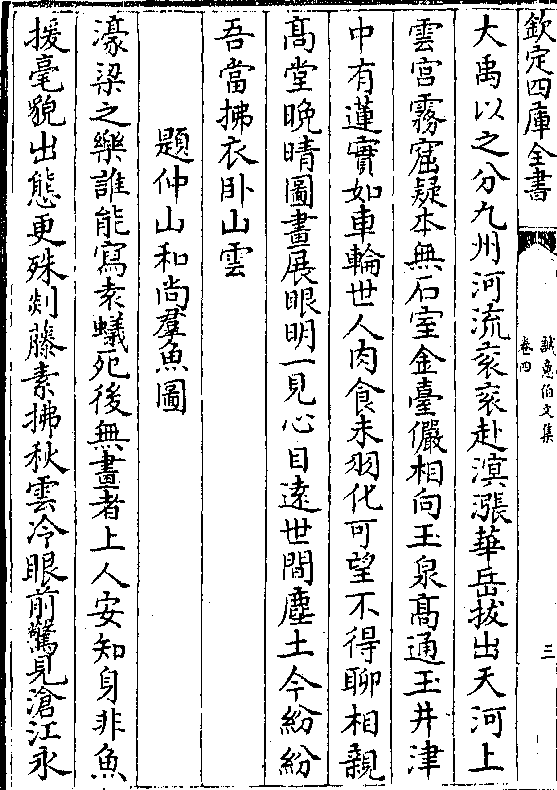 欽定四庫全書
誠意伯文集
卷四
三
大禹以之分九州河流亥亥赴溟漲華岳拔出天河上
雲宫霧窟疑本無石室金臺儼相向玉泉高通玉井津
中有蓮實如車輪世人肉食未羽化可望不得聊相親
髙堂晚晴圖畫展眼明一見心目逺世間塵土今紛紛
吾當拂衣卧山雲
題仲山和尚羣魚圖
濠梁之樂誰能寫袁蟻死後無畫者上人安知身非魚
援毫貌出態更殊剡藤素拂秋雲冷眼前驚見滄江永